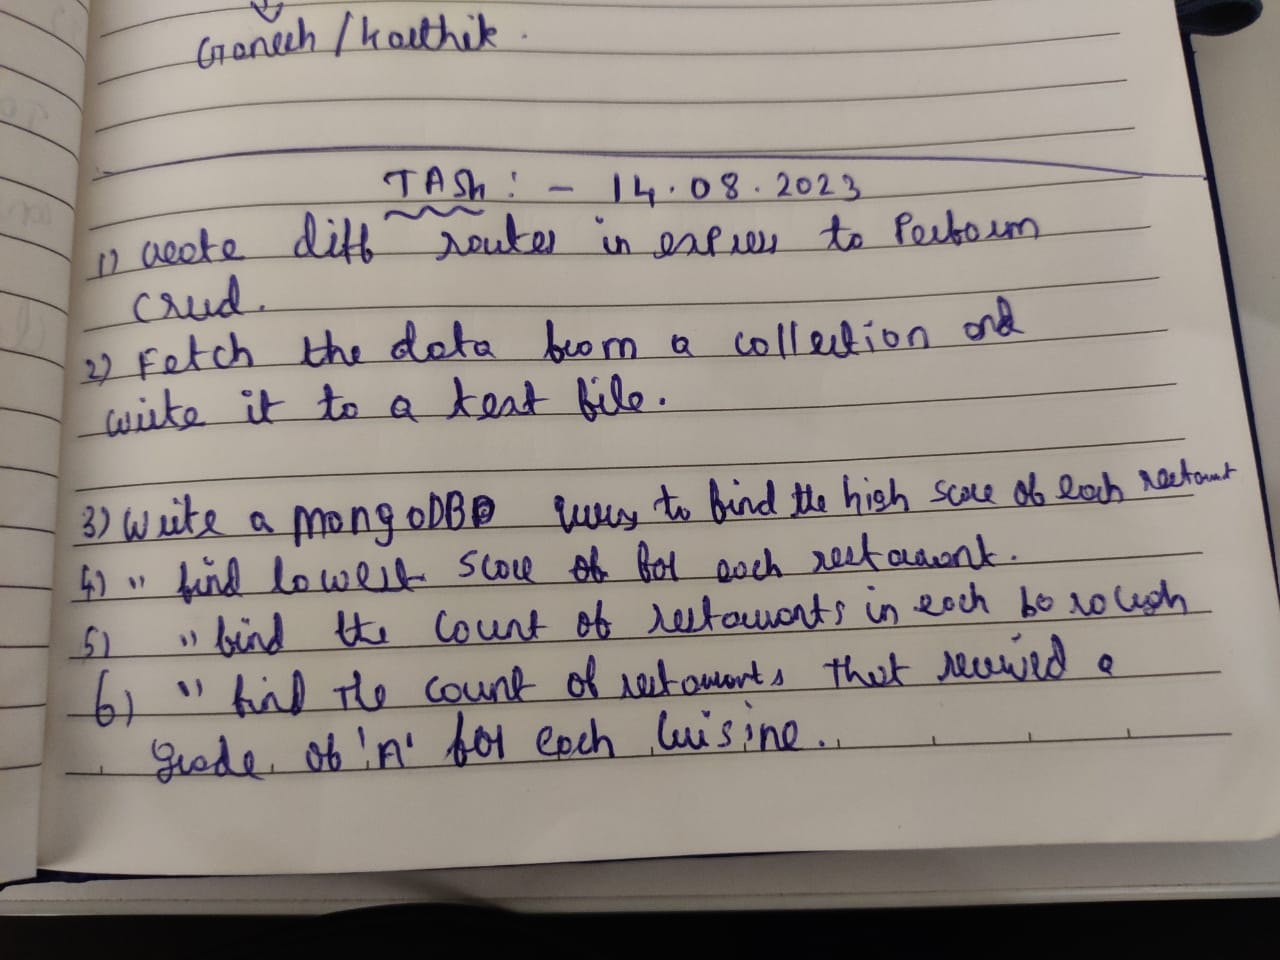 Ganesh / Karthik.
TASk : - 14.08.2023
1) create diff routes in express to Perform
Crud.
2) Fetch the data from a collection and
write it to a text file.
3) Write a mongoDB query to find the high score of each restaurant
4) " find lowest score of for each restaurant.
5) " find the count of restaurants in each borough
6) " find the count of restaurants that received a
grade of 'A' for each cuisine.